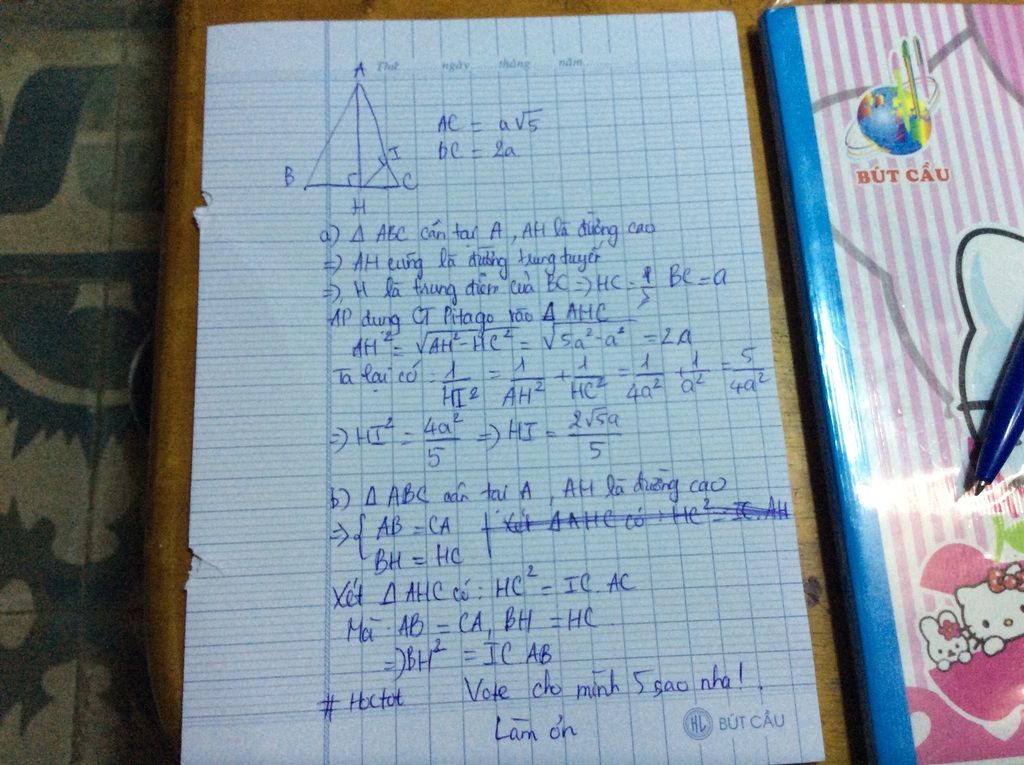 Thứ ngày tháng năm
A
AC = a√5
BC = 2a
I
B
C
H
a) Δ ABC cân tại A, AH là đường cao
=> AH cũng là đường trung tuyến
=> H là trung điểm của BC => HC = 1/2 BC = a
AP dụng CT Pitago vào Δ AHC
AH² = √AH² - HC² = √5a² - a² = 2a
Ta lại có 1/HI² = 1/AH² + 1/HC² = 1/4a² + 1/a² = 5/4a²
=> HI² = 4a²/5 => HI = 2√5a/5
b) Δ ABC cân tại A, AH là đường cao
=> { AB = CA Xét Δ AHC có: HC² = IC.AH
BH = HC
Xét Δ AHC có: HC² = IC.AC
Mà AB = CA, BH = HC
=> BH² = IC AB
# Hoctot Vote cho mình 5 sao nha!
Làm ơn
HL BÚT CẦU
BÚT CẦU